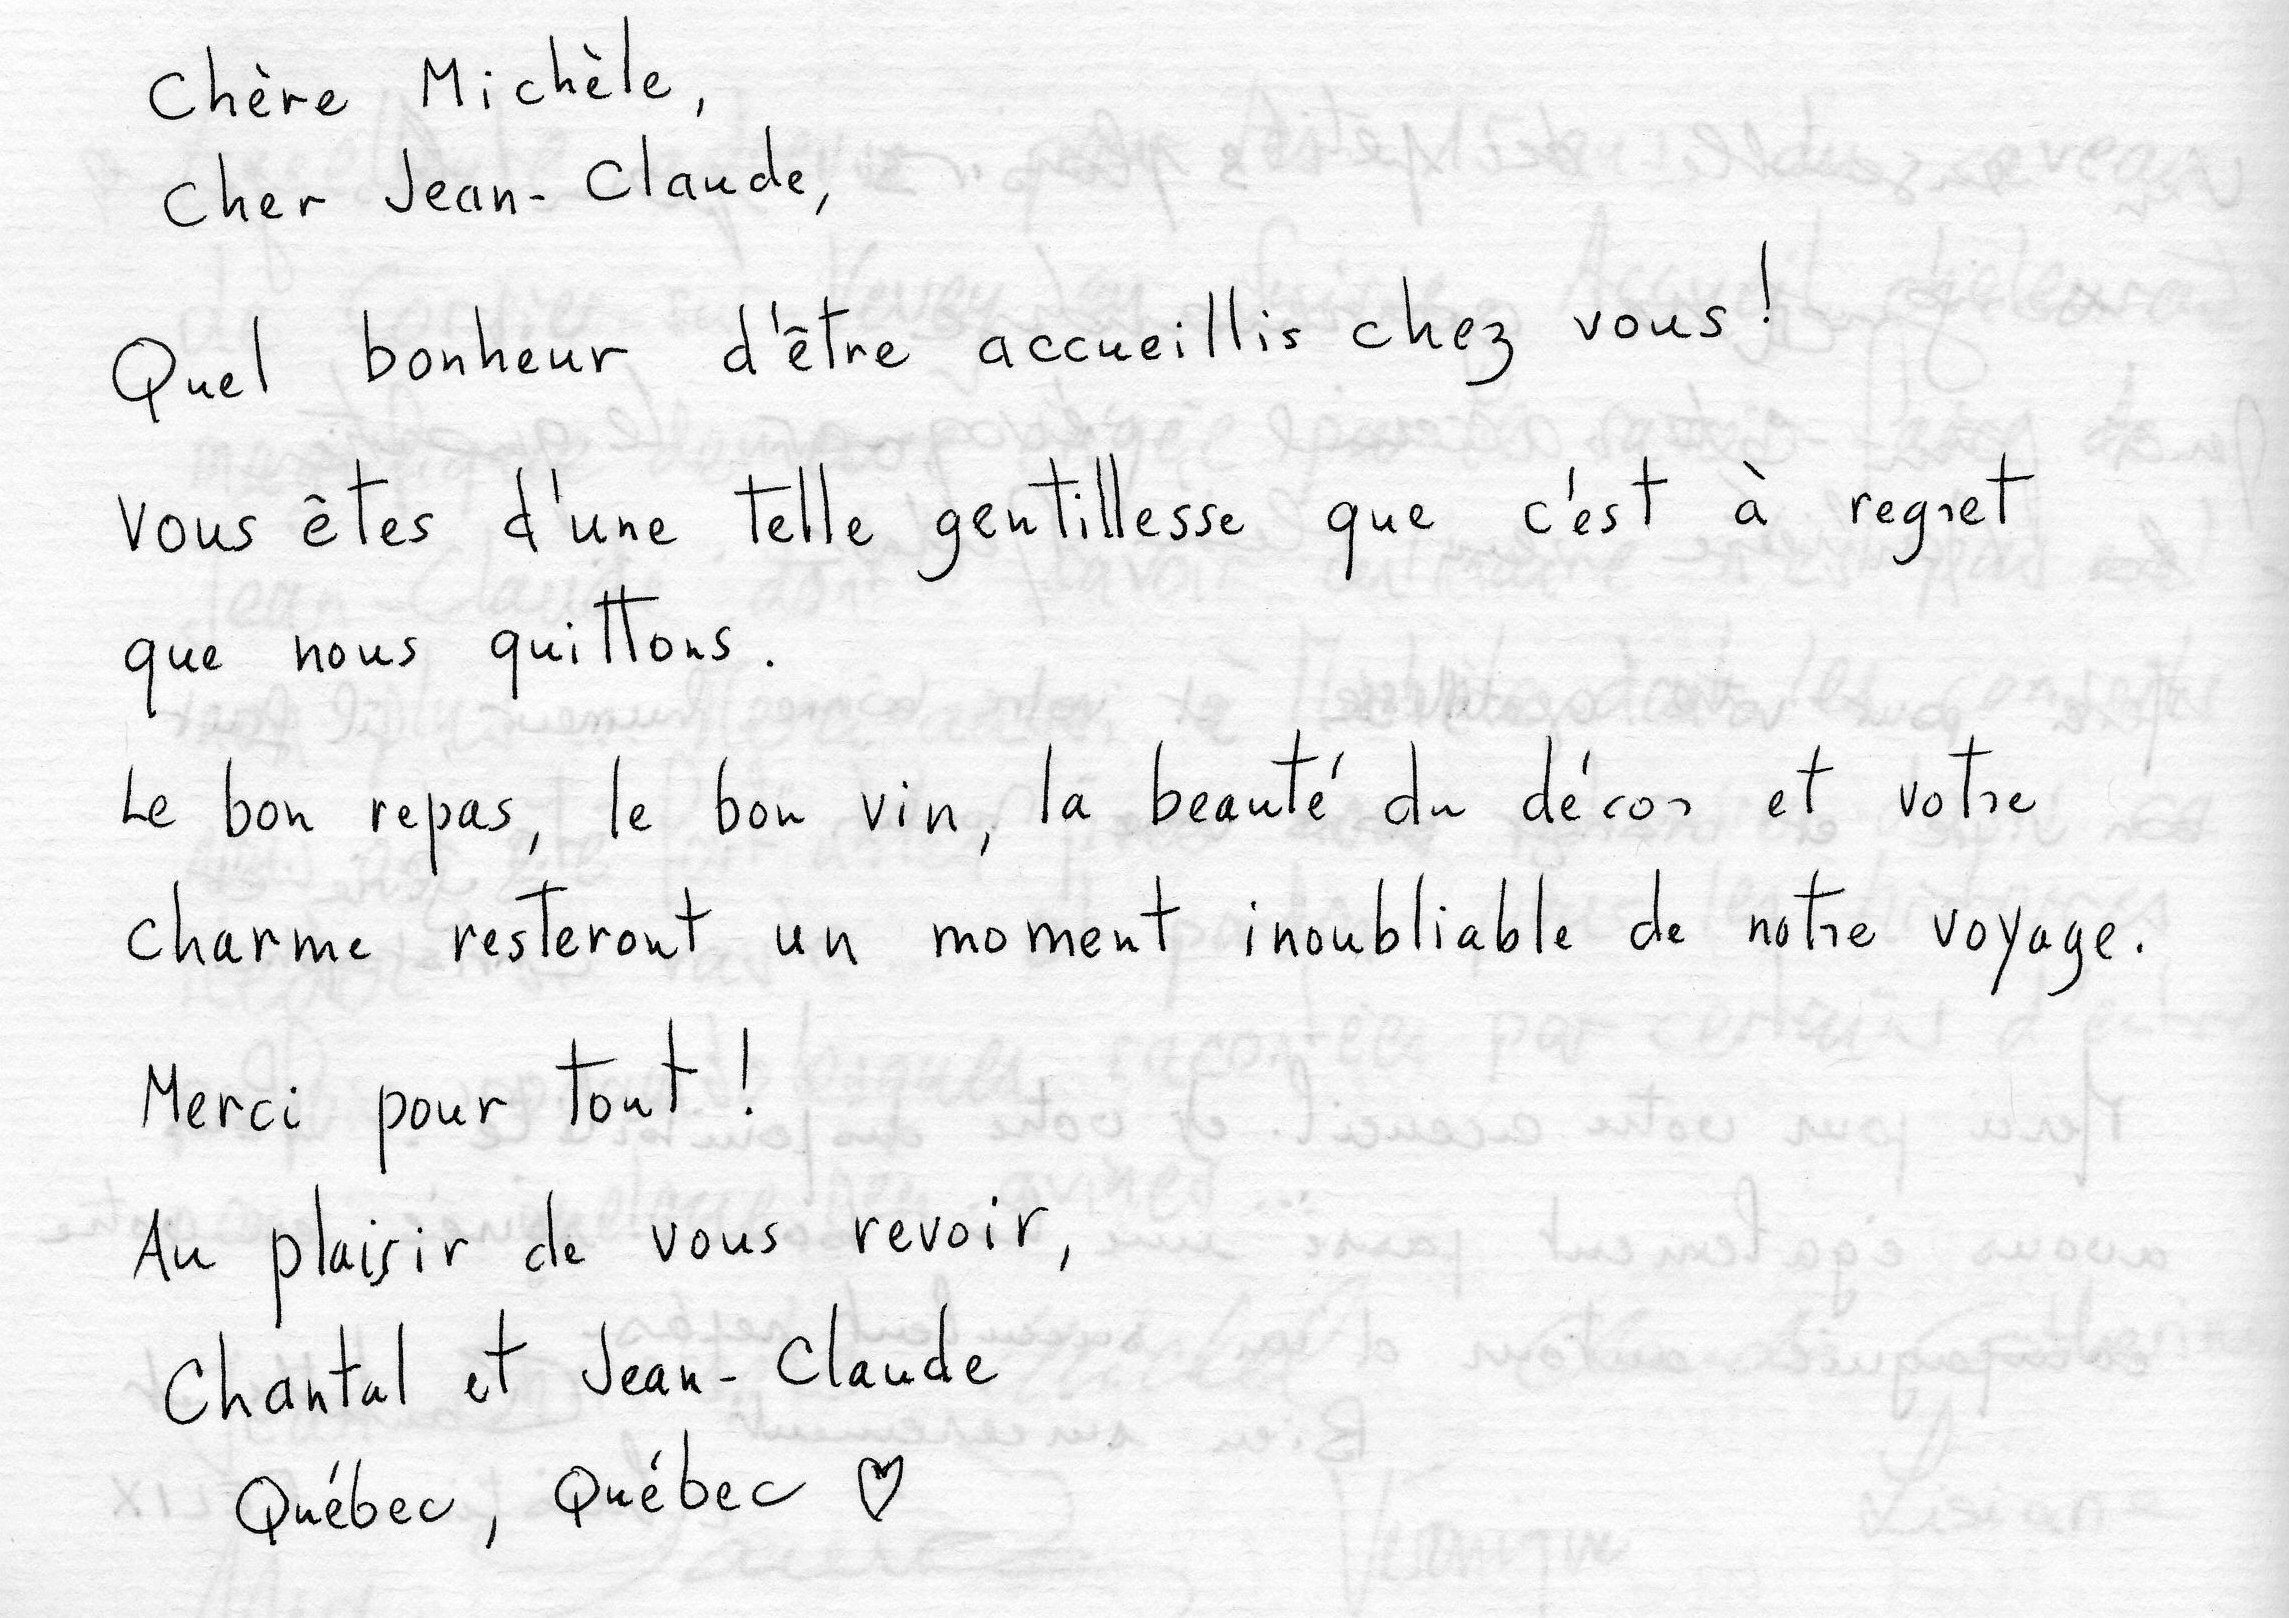 Chère Michèle,
Cher Jean-Claude,
Quel bonheur d'être accueillis chez vous!
Vous êtes d'une telle gentillesse que c'est à regret
que nous quittons.
Le bon repas, le bon vin, la beauté du décor et votre
charme resteront un moment inoubliable de notre voyage.
Merci pour tout!
Au plaisir de vous revoir,
Chantal et Jean-Claude
Québec, Québec ♡